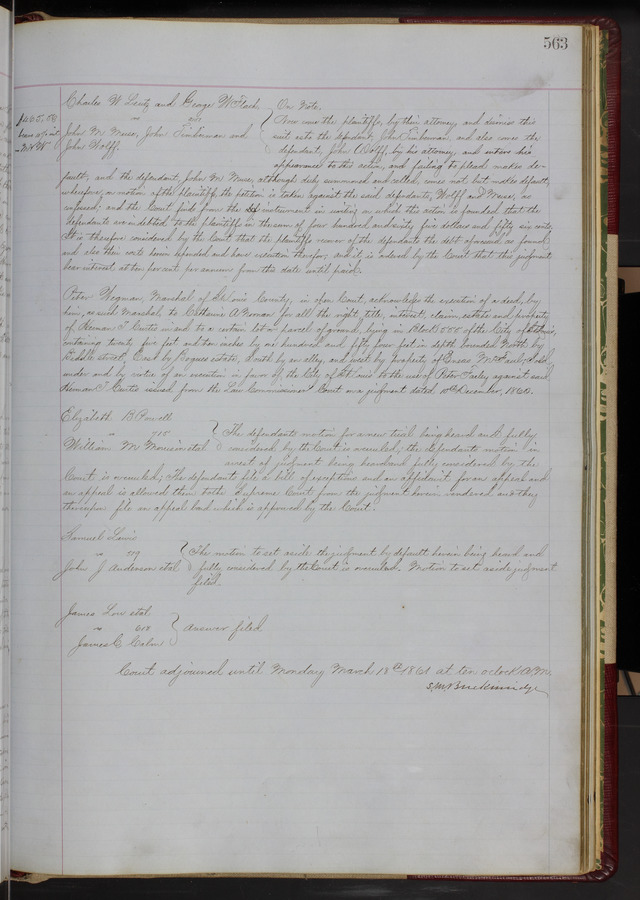 563
Charles W Lentz and George W Flach } On Note.
vs Now come the plaintiffs, by their attorney, and dismiss this
John M Meuse, John Finberman and suit as to the defendant, John Finberman and also comes the
John Wolff. defendant, John Wolff, by his attorney, and enters his
appearance to this action, and failing to plead makes de-
fault, and the defendant John M Meuse, although duly summoned and called, comes not but makes default,
wherefore, on motion of the plaintiff, the petition is taken against the said defendants, Wolff and Meuse, as
confessed; and the Court finds from the instrument in writing on which this action is founded that the
defendants are indebted to the plaintiffs in the sum of four hundred and sixty five dollars and fifty six cents,
It is therefore considered by the Court that the plaintiffs recover of the defendants the debt aforesaid as found
and also their costs herein expended and have execution therefor; and it is ordered by the Court that this judgment
bear interest at ten per cent per annum from this date until paid.
Peter Wegman, Marshal of St Louis County, in open Court, acknowledges the execution of a deed by
him, as such Marshal, to Catharine A. for all the right, title, interest, claim, estate and property
of Heeman T Curtis in and to a certain lot or parcel of ground, lying in Block 558 of the City of St Louis,
containing twenty five feet and ten inches by one hundred and fifty four feet in depth bounded North by
Biddle street, East by Rogues estate, South by an alley, and west by property of
under and by virtue of an execution in favor of the City of St Louis to the use of Peter Farley against said
Heeman T Curtis issued from the Law Commissioner's Court on a judgment dated 10th December, 1860.
Elizabeth B Powell
vs 715 } The defendants motion for a new trial being heard and fully
William M Morrison et al considered by the Court is overruled; the defendants motion in
arrest of judgment being heard and fully considered by the
Court is overruled; The defendants file a bill of exceptions and an affidavit for an appeal and
an appeal is allowed them to the Supreme Court from the judgment herein rendered and they
thereupon file an appeal bond which is approved by the Court.
Samuel Lewis
vs 379 } The motion to set aside the judgment by default herein being heard and
John J Anderson et al fully considered by the Court is overruled. Motion to set aside judgment
filed.
James Low et al.
vs 618 } Answer filed
James C
Court adjourned until Monday March 18th 1861 at ten oclock A.M.
S, M Breckinridge